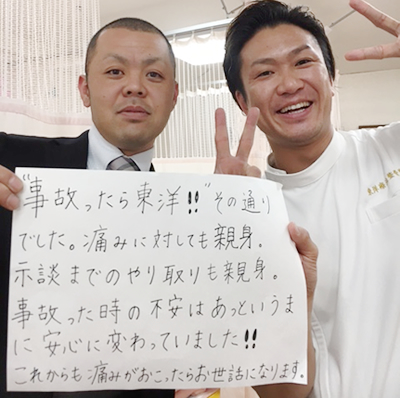 "事故ったら東洋!!"その通り
でした。痛みに対しても親身。
示談までのやり取りも親身。
事故った時の不安はあっというま
に安心に変わっていました!!
これからも痛みがおこったらお世話になります。